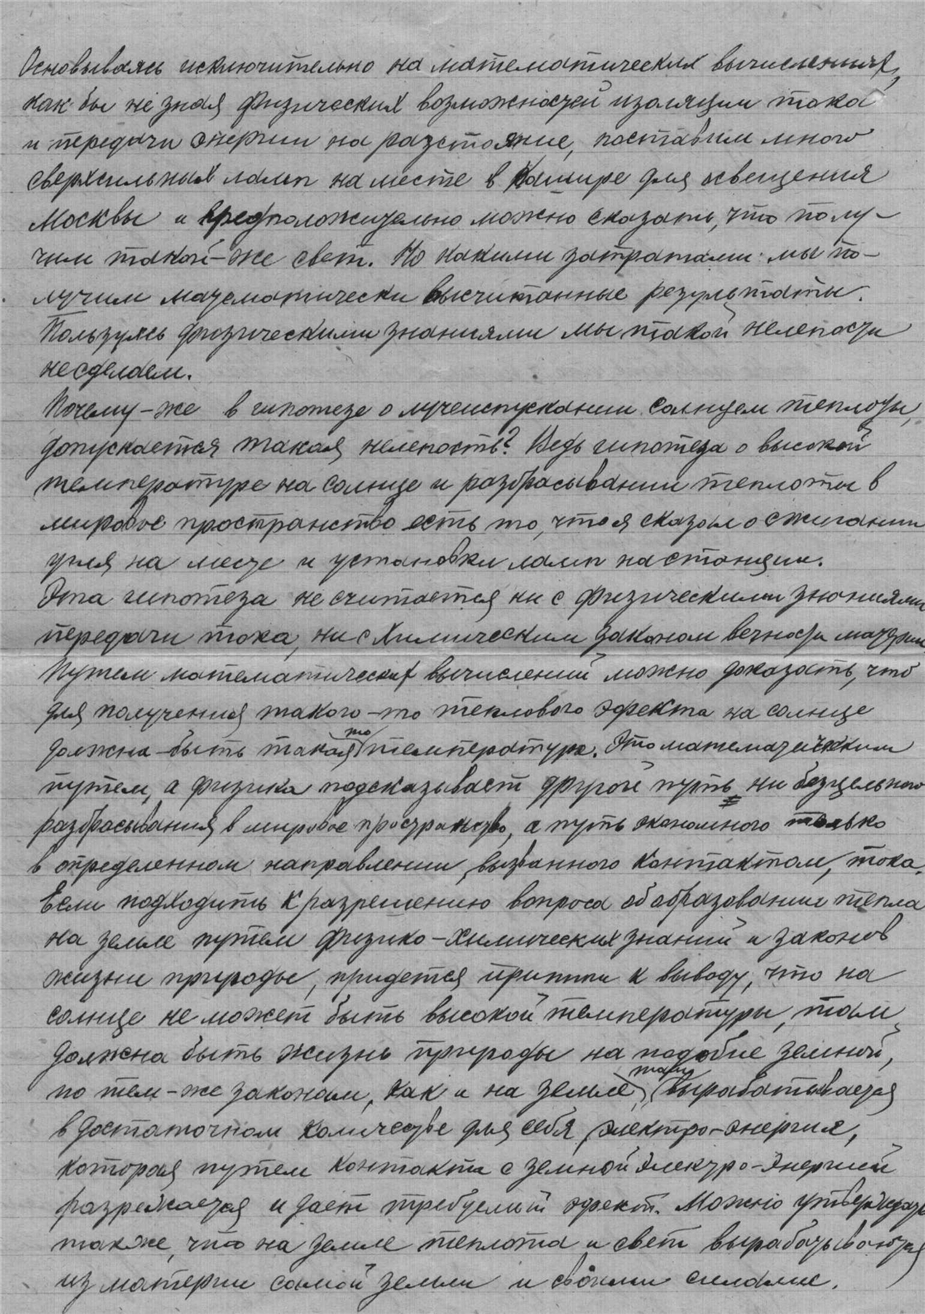 Основываясь исключительно на математических вычислениях,
как бы не зная физических возможностей изоляции тока
и передачи энергии на разстояние, поставим много
сверхсильных ламп на месте в Кашире для освещения
Москвы и предположительно можно сказать, что полу-
чим такой-же свет. Но какими затратами мы по-
лучим математически высчитанные результаты.
Пользуясь физическими знаниями мы такой нелепости
не сделаем.
Почему-же в гипотезе о лучеиспускании солнцем теплоты,
допускается такая нелепость? Ведь гипотеза о высокой
температуре на солнце и разбрасывании теплоты в
мировое пространство есть то, что я сказал о сжигании
угля на месте и установки ламп на станции.
Эта гипотеза не считается ни с физическими знаниями
передачи тока, ни с химическим законом вечности материи
Путем математических вычислений можно доказать, что
для получения такого-то теплового эфекта на солнце
должна-быть такая то температура. Это математическим
путем, а физика подсказывает другой путь ни безцельного
разбрасывания в мировое пространство, а путь экономного только
в определенном направлении, вызванного контактом, тока.
Если подходить к разрешению вопроса об образовании тепла
на земле путем физико-химических знаний и законов
жизни природы, придется притти к выводу, что на
солнце не может быть высокой температуры, там
должна быть жизнь природы на подобие земной,
по тем-же законам, как и на земле, там вырабатывается
в достаточном количестве для себя электро-энергия,
которая путем контакта с земной электро-энергией
разрежается и дает требуемый эфект. Можно утверждать
также, что на земле теплота и свет вырабатываются
из материи самой земли и своими силами.